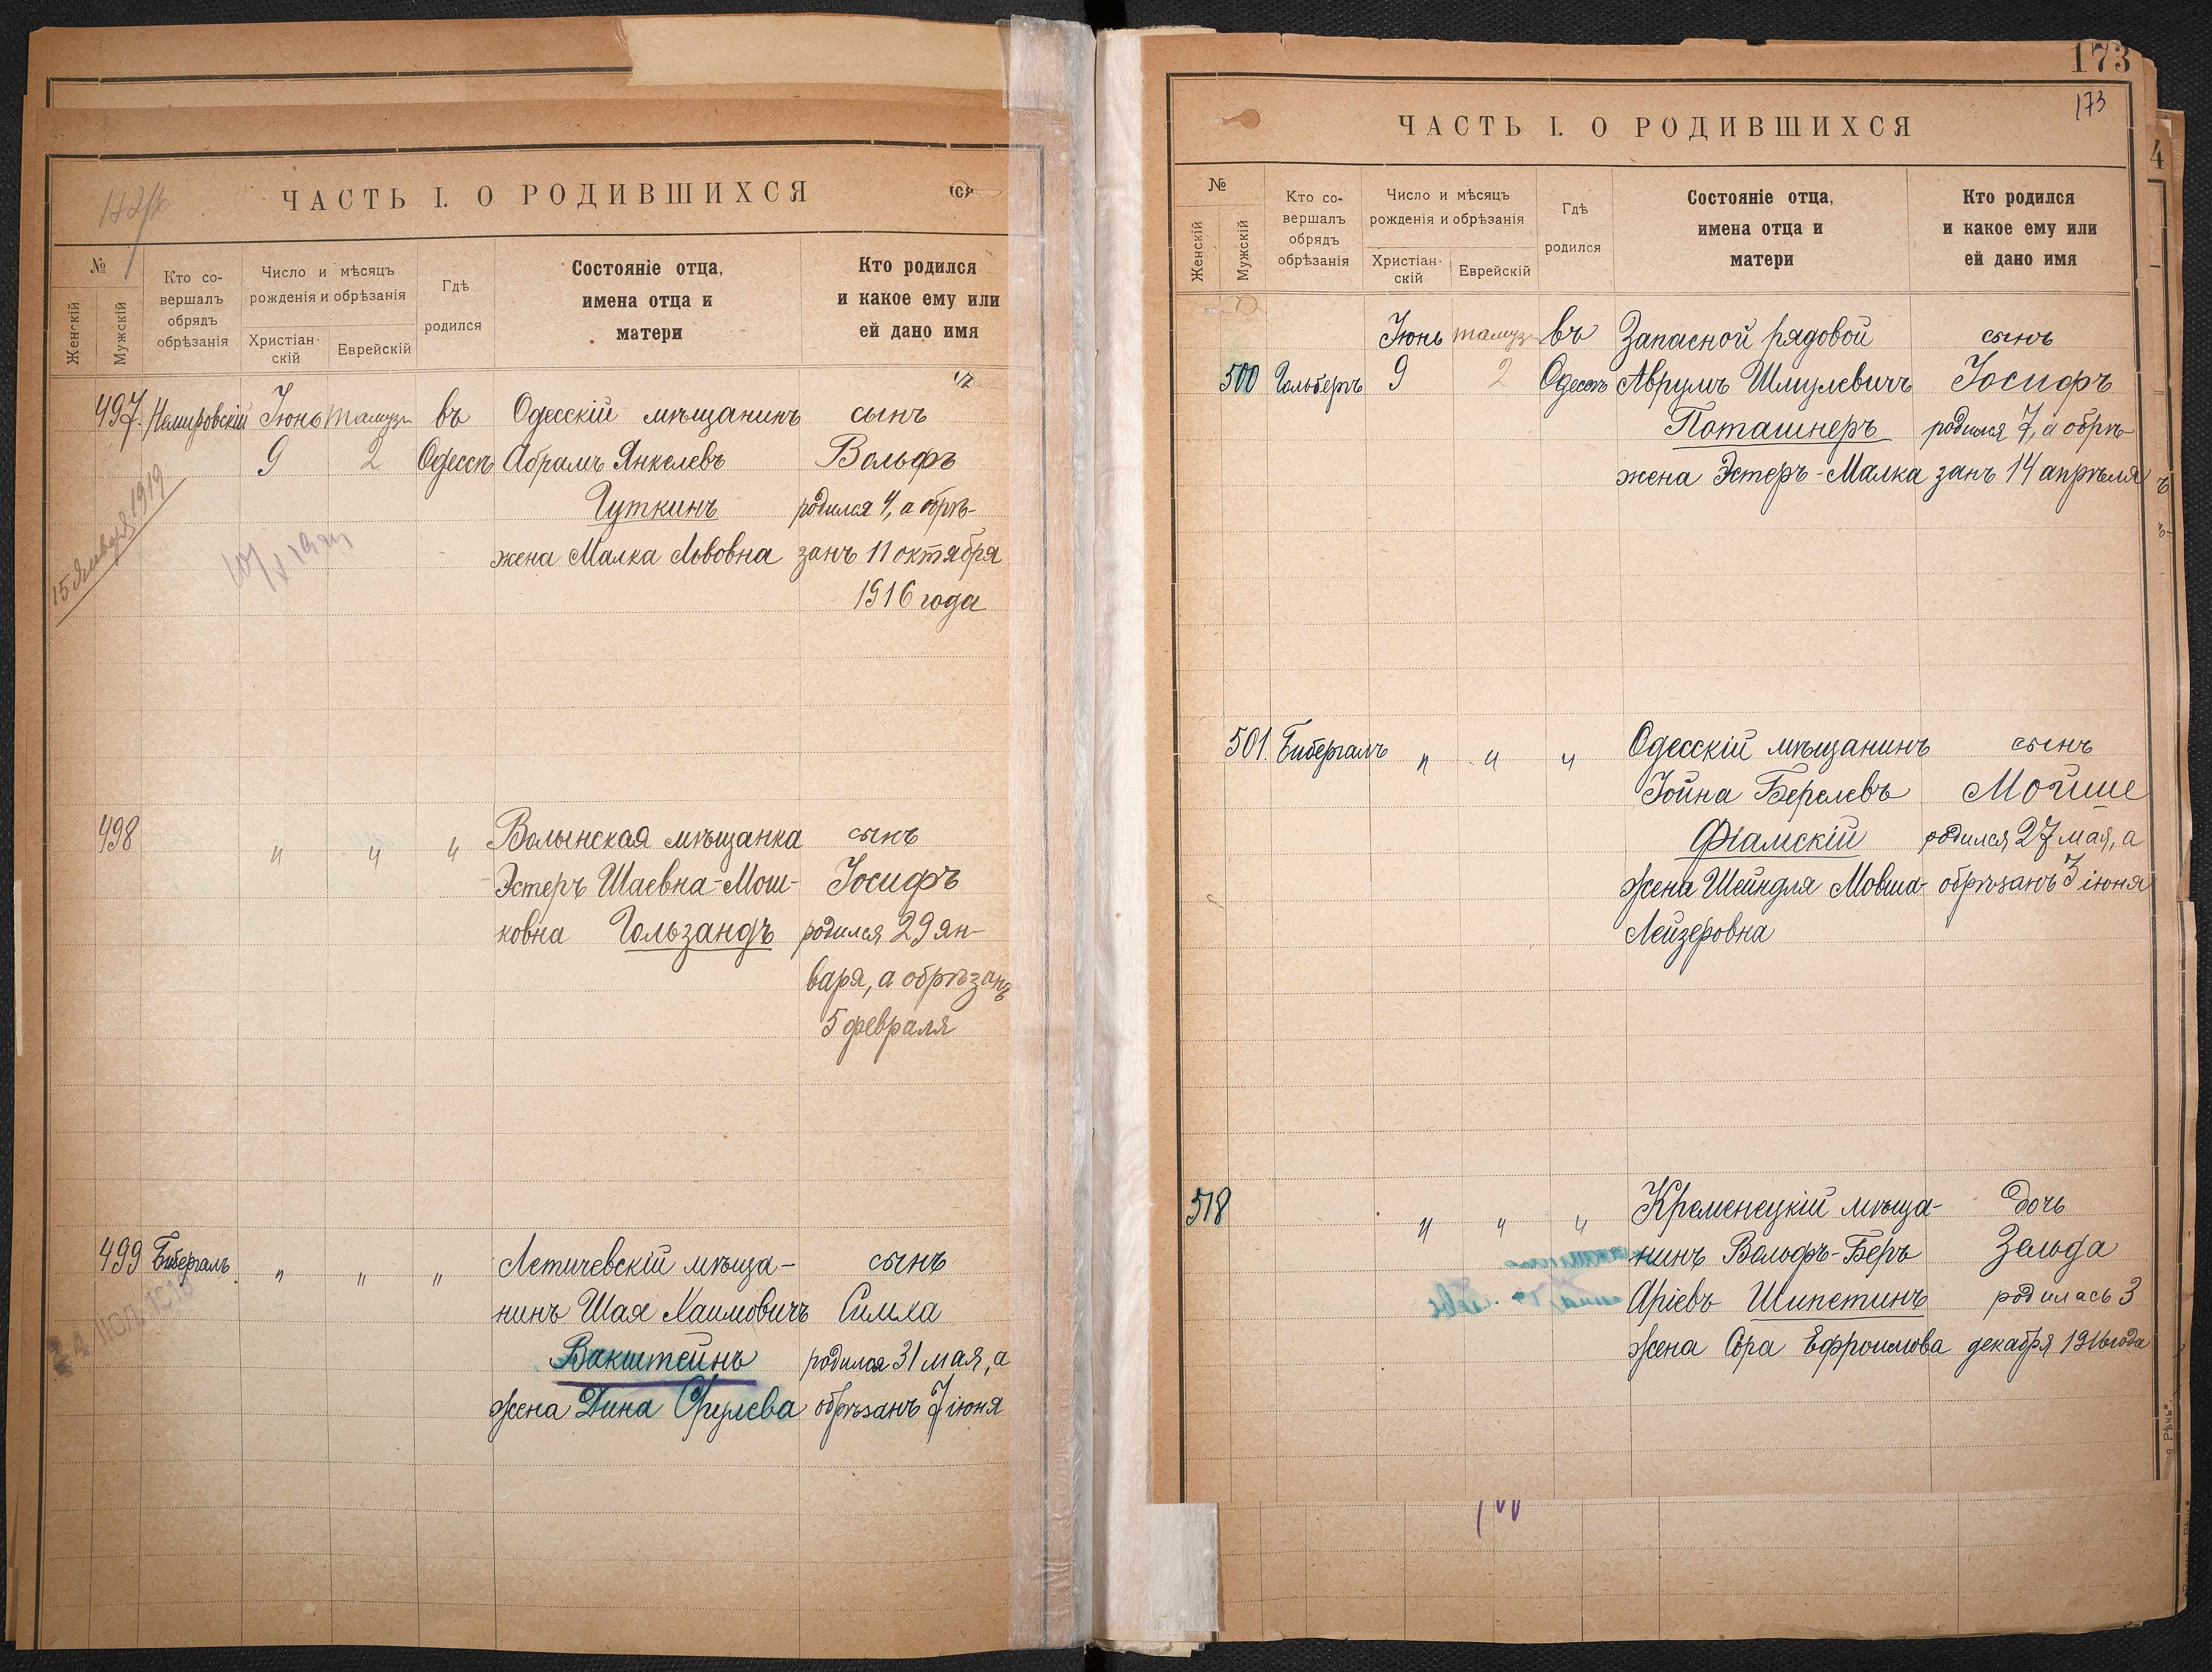 172/б
ЧАСТЬ I. О РОДИВШИХСЯ
№
Женскій
Мужскій
Кто со-
вершалъ
обрядъ
обрѣзанія
Число и мѣсяцъ
рожденія и обрѣзанія
Христіан-
скій
Еврейскій
Гдѣ
родился
Состояніе отца,
имена отца и
матери
Кто родился
и какое ему или
ей дано имя
497. Немировскій Іюнь тамуз въ Одесскій мѣщанинъ сынъ
9 2 Одессѣ Абрамъ Янкелевъ Вольфъ
Гуткинъ родился 4, а обрѣ-
жена Малка Львовна занъ 11 октября
1916 года
15 Января 1919
498 " " " Волынская мѣщанка сынъ
Эстеръ Шаевна-Мош- Іосифъ
ковна Гользандъ родился 29 ян-
варя, а обрѣзанъ
5 февраля
499 Бибергалъ " " " Летичевскій мѣща- сынъ
нинъ Шая Хаимовичъ Симха
Вакштейнъ родился 31 мая, а
жена Дина Срулева обрѣзанъ 7 іюня
173
173
ЧАСТЬ I. О РОДИВШИХСЯ
№
Женскій
Мужскій
Кто со-
вершалъ
обрядъ
обрѣзанія
Число и мѣсяцъ
рожденія и обрѣзанія
Христіан-
скій
Еврейскій
Гдѣ
родился
Состояніе отца,
имена отца и
матери
Кто родился
и какое ему или
ей дано имя
Іюнь тамуз въ Запасной рядовой сынъ
500 Гольберъ 9 2 Одессѣ Аврумъ Шмулевичъ Іосифъ
Поташнеръ родился 7, а обрѣ-
жена Эстеръ-Малка занъ 14 апрѣля
501. Бибергалъ " " " Одесскій мѣщанинъ сынъ
Іойна Берелевъ Мойше
Фіамскій родился 27 мая, а
жена Шейндля Мовша- обрѣзанъ 3 іюня
Лейзеровна
518 " " " Кременецкій мѣща- дочь
нинъ Вольфъ-Беръ Зельда
Аріевъ Шипетинъ родилась 3
жена Сора Ефроимова декабря 1916 года